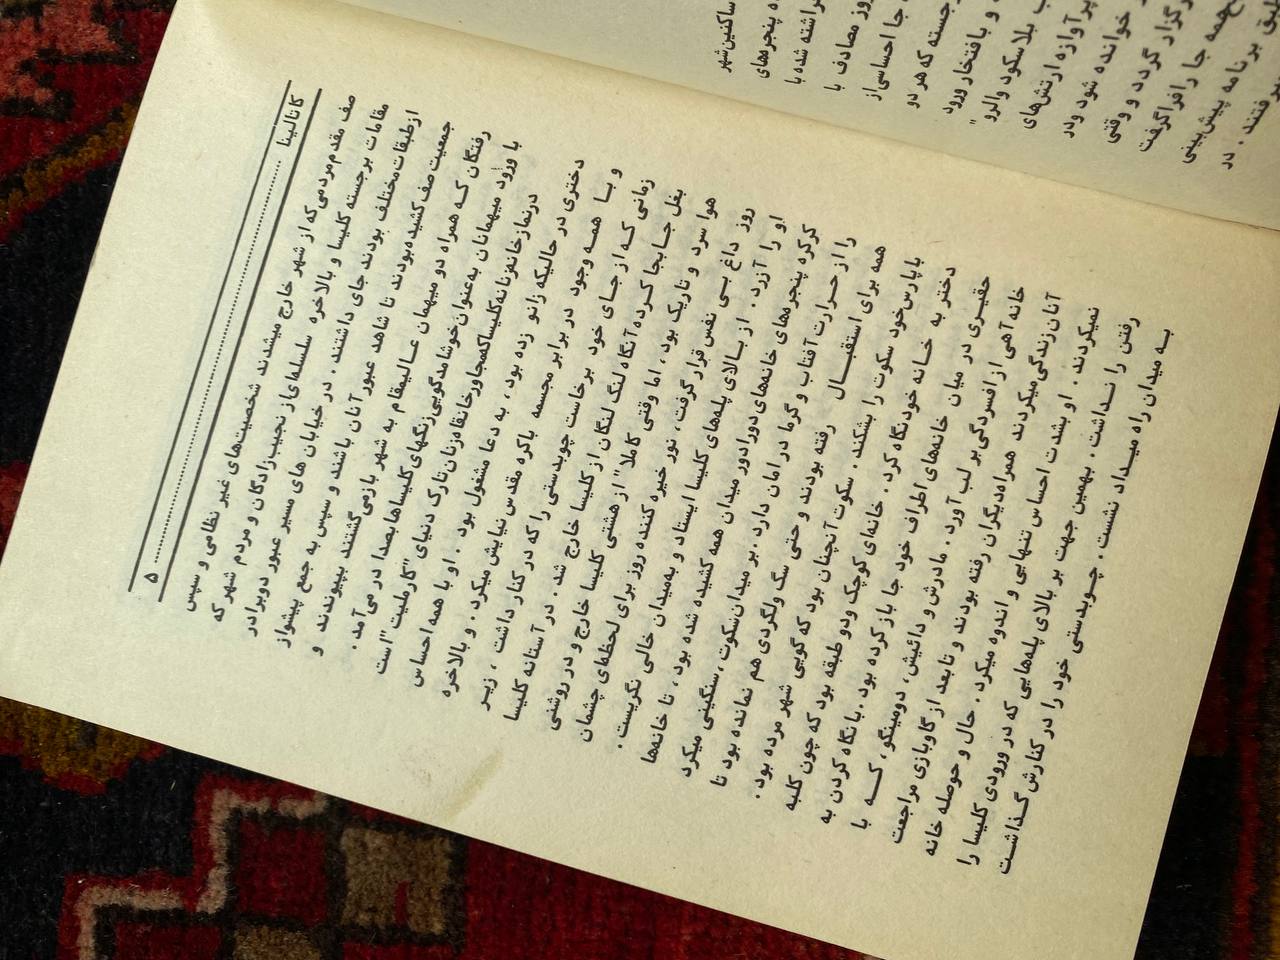 ساکنین شهر
پنجره‌های
راشته شده با
روز مصادف با
جا احساسی از
جسته که هر دو
و با افتخار ورود
بلاسکود والرو"
پرآوازه ارتش‌های
خوانده شود و در
رگزار گردد و وقتی
همه جا را فرا گرفت
طبق برنامه پیش‌بینی
فتند . در
کاتالینا ........ ۵
صف مقدم مردمی که از شهر خارج میشدند شخصیت‌های غیر نظامی و سپس
مقامات برجسته کلیسا و بالاخره سلسله‌ای از نجیب‌زادگان و مردم شهر که
از طبقات مختلف بودند جای داشتند . در خیابان های مسیر عبور دو برادر
جمعیت صف کشیده بودند تا شاهد عبور آنان باشند و سپس به جمع پیشواز
رفتگان که همراه دو میهمان عالیمقام به شهر بازمی‌گشتند بپیوندند و
با ورود میهمانان به‌عنوان خوشامدگویی زنگهای کلیساها بصدا در می‌آمد .
در نمازخانه زنانه کلیسا که مجاور خانقاه زنان تارک دنیای "کارملیت" است
دختری در حالیکه زانو زده بود ، به دعا مشغول بود . او با همه احساس
و با همه وجود در برابر مجسمه باکره مقدس نیایش میکرد . و بالاخره
زمانی که از جای خود برخاست چوبدستی را که در کنار داشت ، زیر
بغل جابجا کرده آنگاه لنگ لنگان از کلیسا خارج شد . در آستانه کلیسا
هوا سرد و تاریک بود ، اما وقتی کاملا" از هشتی کلیسا خارج و در روشنی
روز داغ بی نفس قرار گرفت ، نور خیره کننده روز برای لحظه‌ای چشمان
او را آزرد . از بالای پله‌های کلیسا ایستاد و به‌میدان خالی نگریست .
کرکره پنجره‌های خانه‌های دورادور میدان همه کشیده شده بود ، تا خانه‌ها
را از حرارت آفتاب و گرما در امان دارد . بر میدان سکوت ، سنگینی میکرد
همه برای استقبال رفته بودند و حتی سگ ولگردی هم نمانده بود تا
با پارس خود سکوت را بشکند . سکوت آنچنان بود که گویی شهر مرده بود .
دختر به خانه خود نگاه کرد . خانه‌ای کوچک و دو طبقه بود که چون کلبه
حقیری در میان خانه‌های اطراف خود جا باز کرده بود . با نگاه کردن به
خانه آهی از افسردگی بر لب آورد . مادرش و دائیش ، دومینگو ، که با
آنان زندگی میکردند همراه دیگران رفته بودند و تا بعد از گاوبازی مراجعت
نمیکردند . او بشدت احساس تنهایی و اندوه میکرد . حال و حوصله خانه
رفتن را نداشت . بهمین جهت بر بالای پله‌هایی که در ورودی کلیسا را
به میدان راه میداد نشست . چوبدستی خود را در کنارش گذاشت